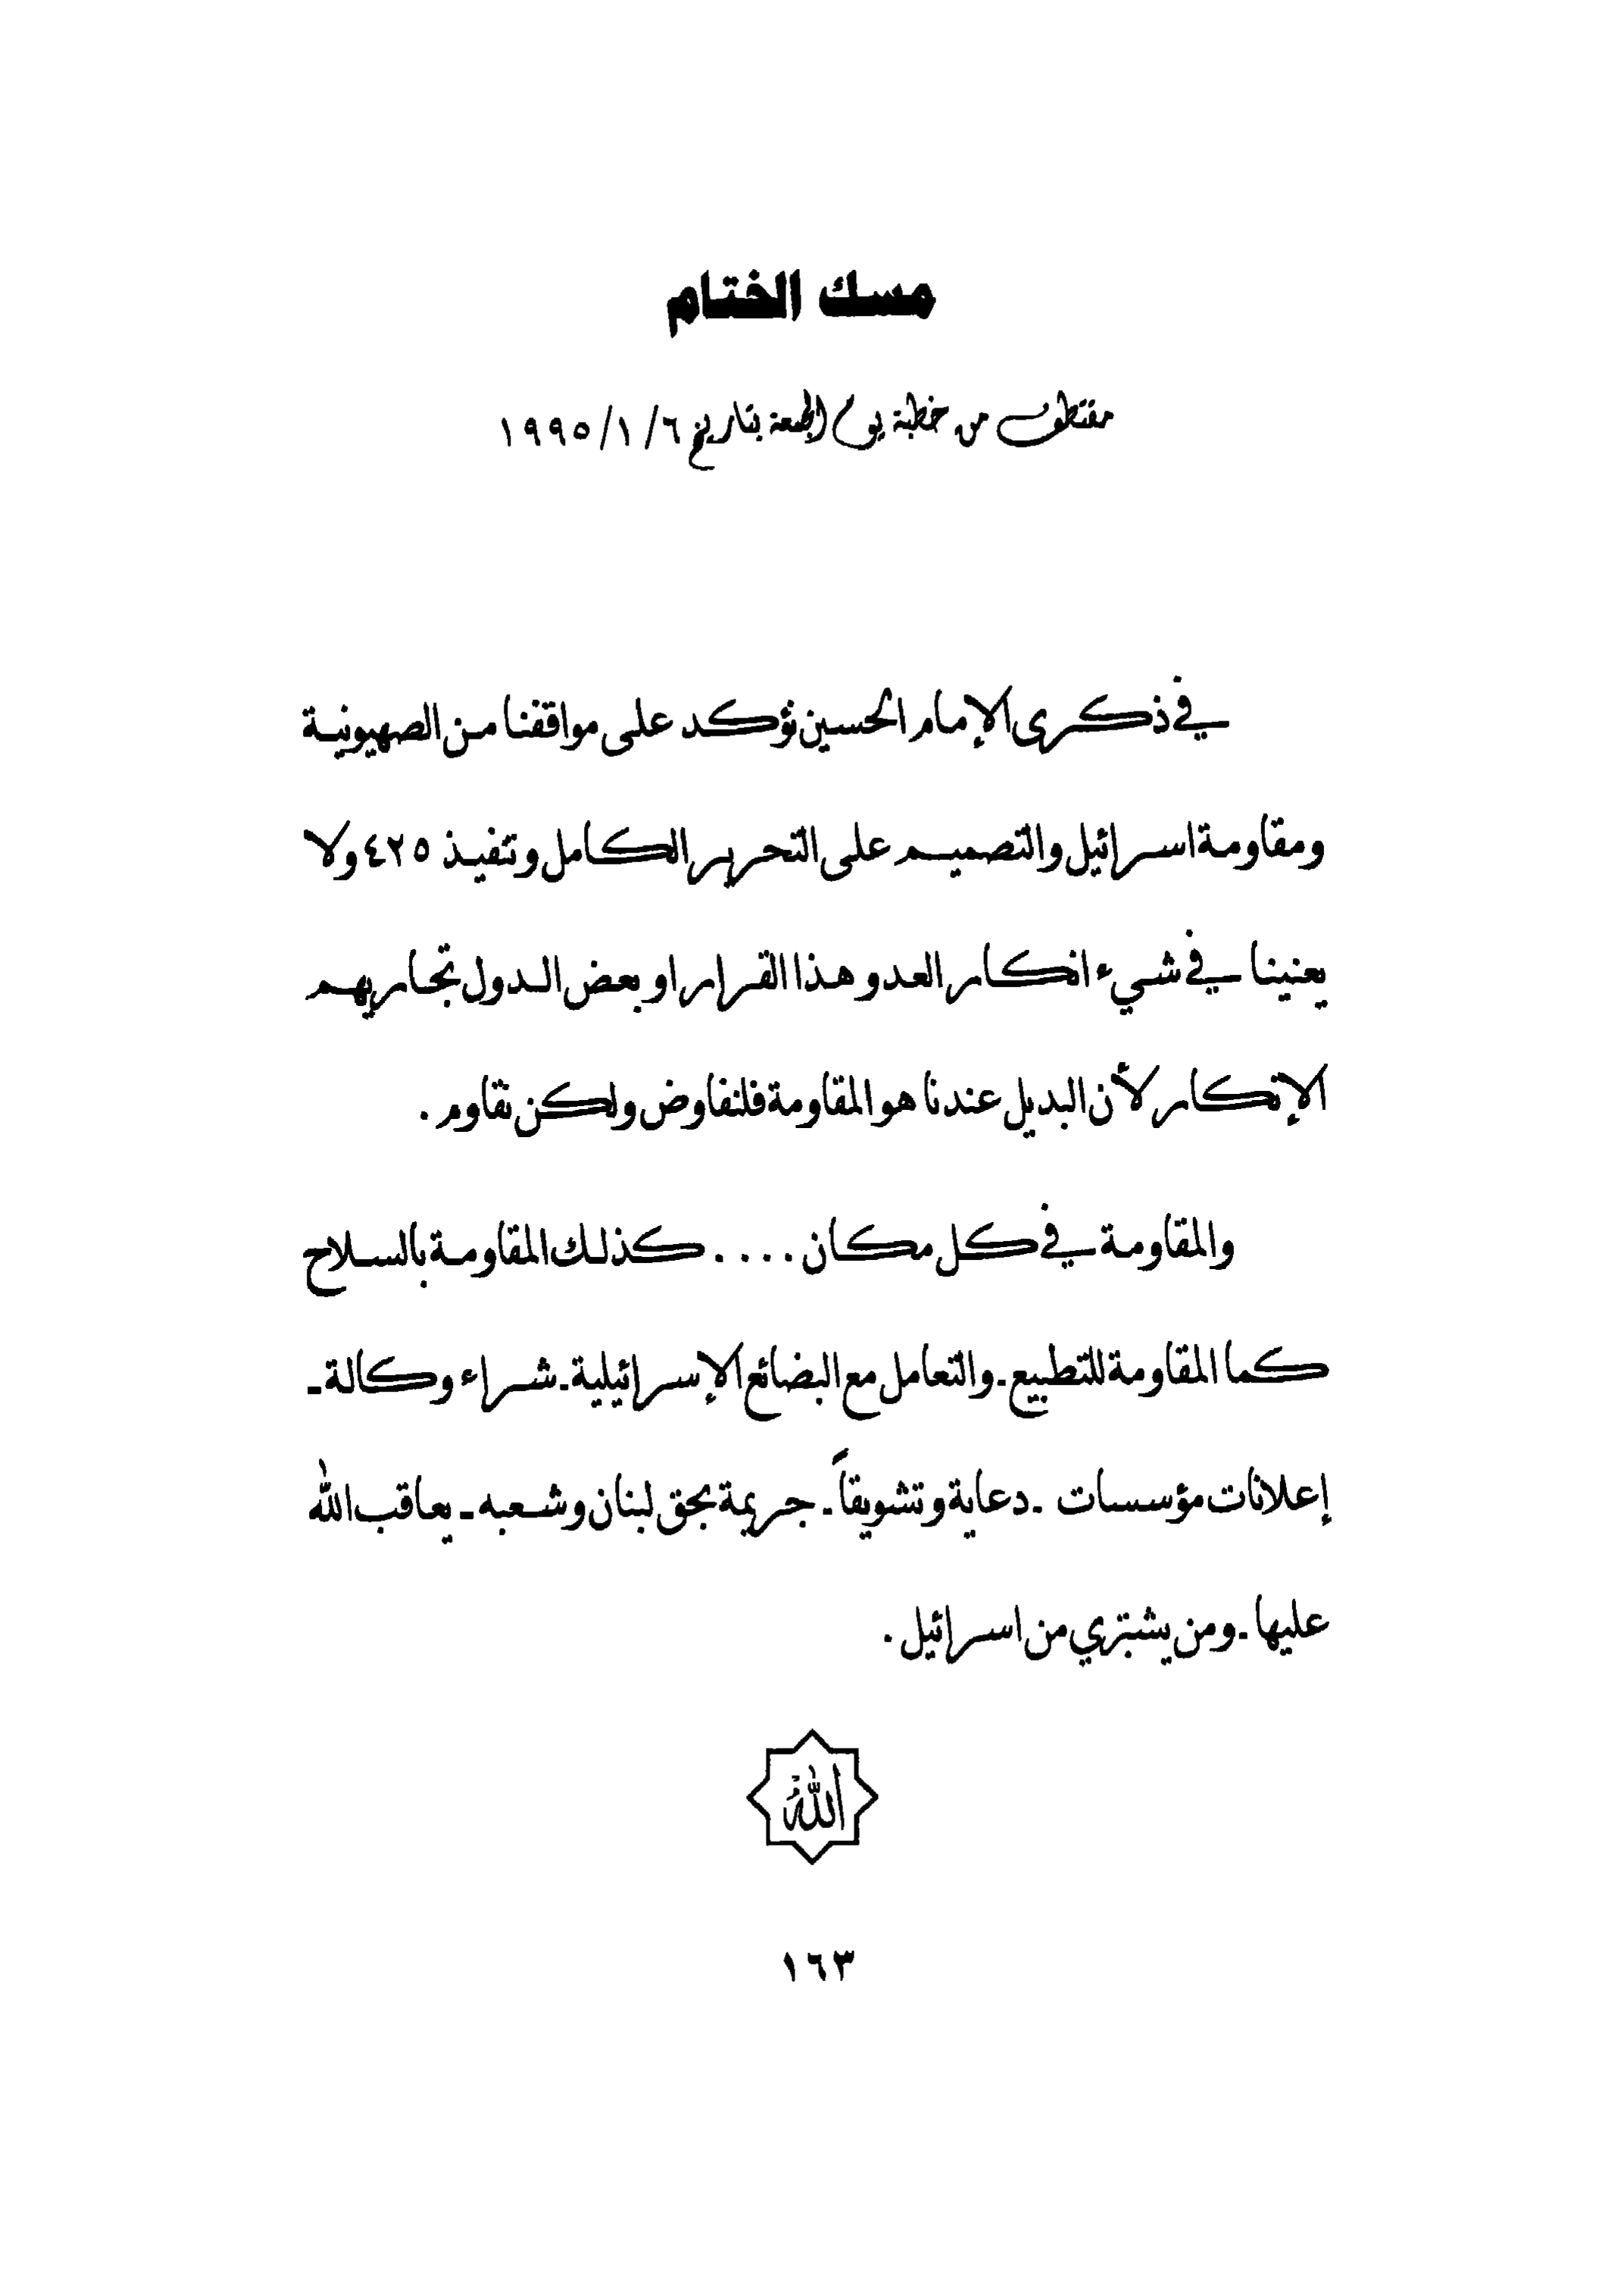 مسك الختام
مقتطف من خطبة يوم الجمعة بتاريخ ٦/١/١٩٩٥
في ذكرى الإمام الحسين نؤكد على مواقفنا من الصهيونية
ومقاومة اسرائيل والتصميم على التحرير الكامل وتنفيذ ٤٢٥ ولا
يعنينا في شيء انكار العدو هذا القرار او بعض الدول تجاريهم
الإنكار لأن البديل عندنا هو المقاومة فلنفاوض ولكن نقاوم .
والمقاومة في كل مكان . . . . كذلك المقاومة بالسلاح
كما المقاومة للتطبيع ـ والتعامل مع البضائع الإسرائيلية ـ شراء وكالة ـ
إعلانات مؤسسات ـ دعاية وتشويقاً ـ جريمة بحق لبنان وشعبه ـ يعاقب الله
عليها ـ ومن يشتري من اسرائيل .
الله
١٦٣